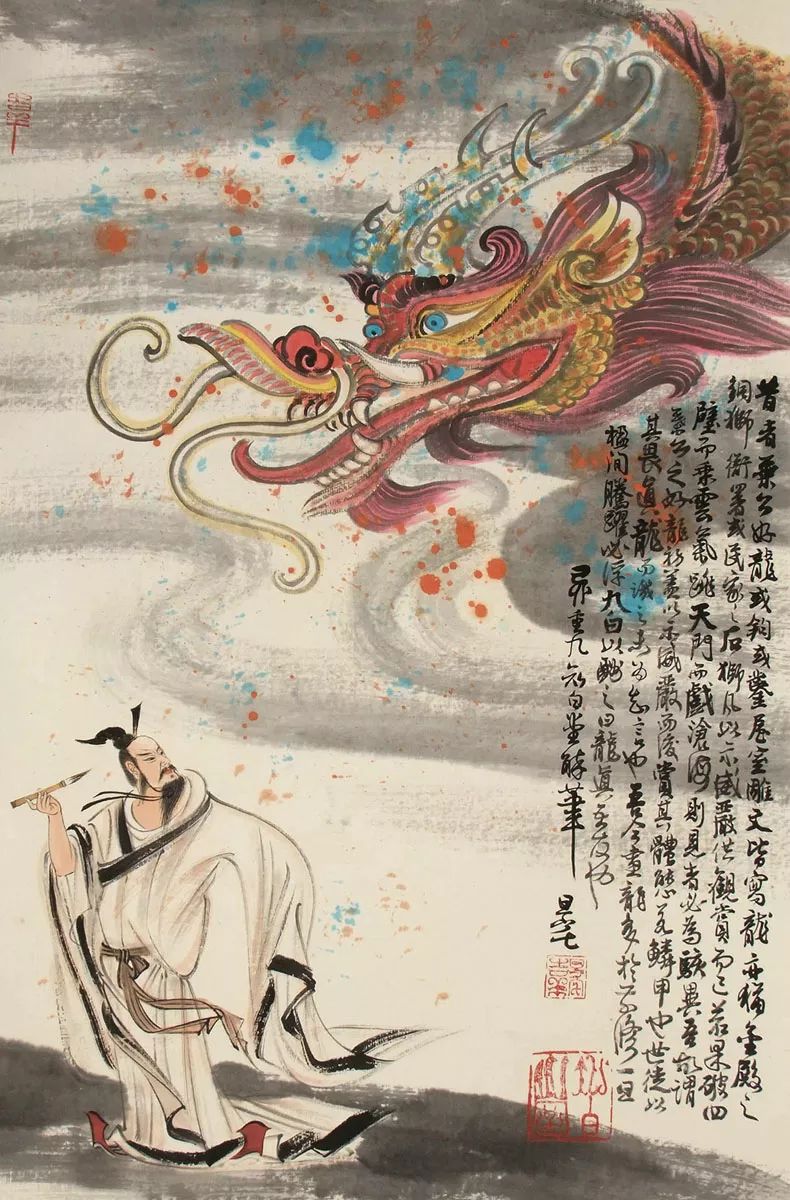 昔者葉公好龍或鈎或鑿屋室雕文皆寫龍亦猶金殿之
銅獅衙署或民家之石獅凡以示威嚴供觀賞而已若果破四
壁而乘雲氣跳天門而戲滄海則見者必為駭異吾故謂
葉公之好龍初蓋以示威嚴而後賞其體態若鱗甲也世徒以
其畏真龍而譏之未為知言也吾今畫龍多於一旦
楹间騰躍必浮九白以酬之曰龍真吾友也
重九白堂醉筆